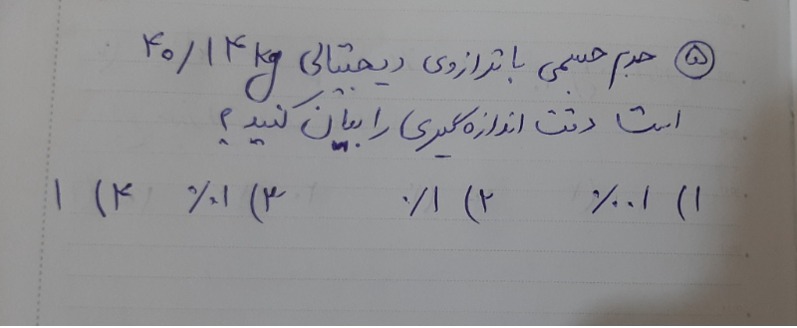 ۵ جرم جسمی با ترازوی دیجیتالی ۴۰/۱۴kg
است دقت اندازه گیری را بیان کنید؟
۱) ۰/۰۰۱ ۲) ۰/۱ ۳) ۰/۰۱ ۴) ۱